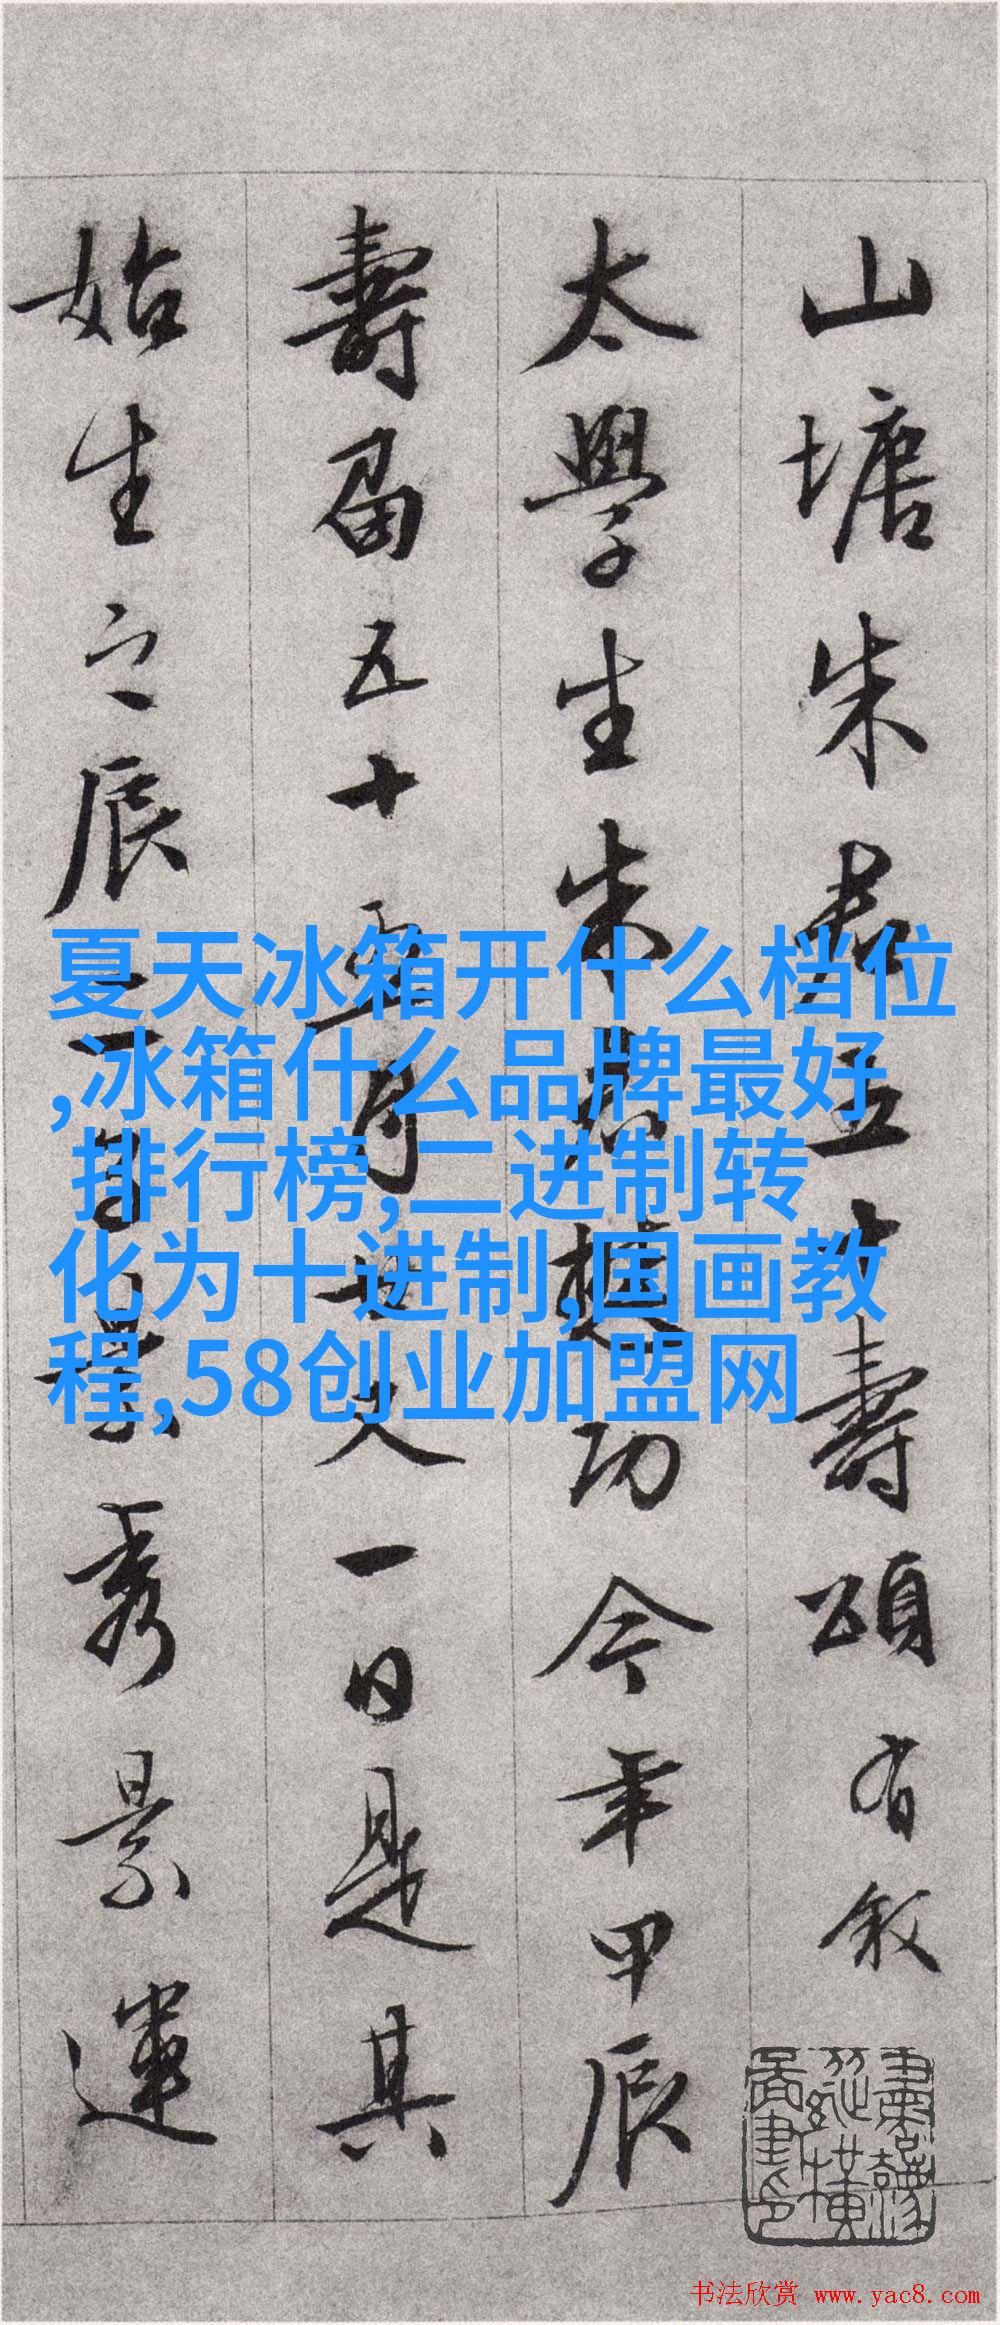 山塘朱君五十壽頌有敘
太學生朱君懋功今年甲辰
壽留五十五月廿又一日是其
始生之辰
景秀景運
夏天冰箱开什么档位
,冰箱什么品牌最好
排行榜,二进制转
化为十进制,国画教
程,58创业加盟网
书法欣赏 www.yac8.com